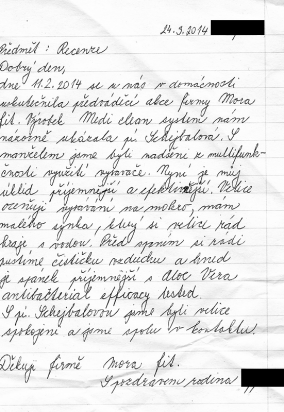 24.3.2014
Předmět: Recenze
Dobrý den,
dne 11.2.2014 se u nás v domácnosti
uskutečnila předváděcí akce firmy Mora
fit. Výrobek Medi clean system nám
názorně ukázala pí. Schejbalová. S
manželem jsme byli nadšeni z multifunk-
čnosti využití vysavače. Nyní je můj
úklid příjemnější a efektivnější. Velice
oceňuji vysávání na mokro, mám
malého synka, který si velice rád
hraje s vodou. Před spaním si rádi
pustíme čističku vzduchu a hned
je spánek příjemnější s Aloe Vera
antibacterial efficacy tested.
S pí. Schejbalovou jsme byli velice
spokojeni a jsme spolu v kontaktu.
Děkuji firmě Mora fit.
S pozdravem rodina